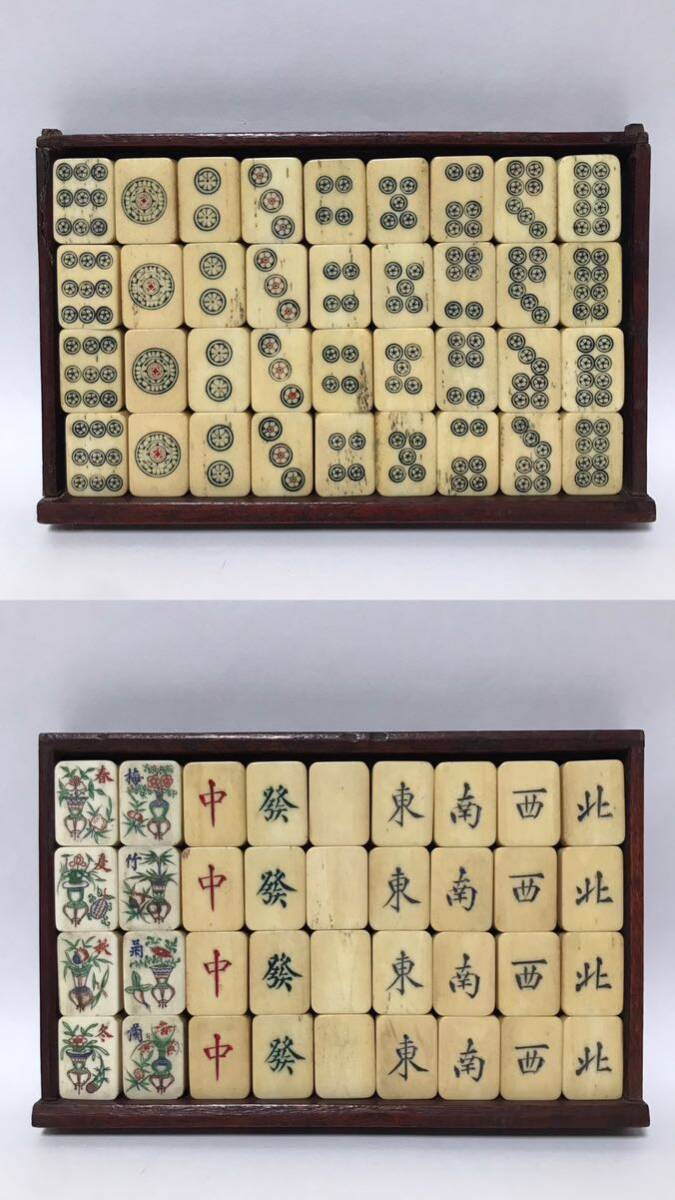 春 梅 中 發 東 南 西 北
夏 竹 中 發 東 南 西 北
秋 菊 中 發 東 南 西 北
冬 蘭 中 發 東 南 西 北